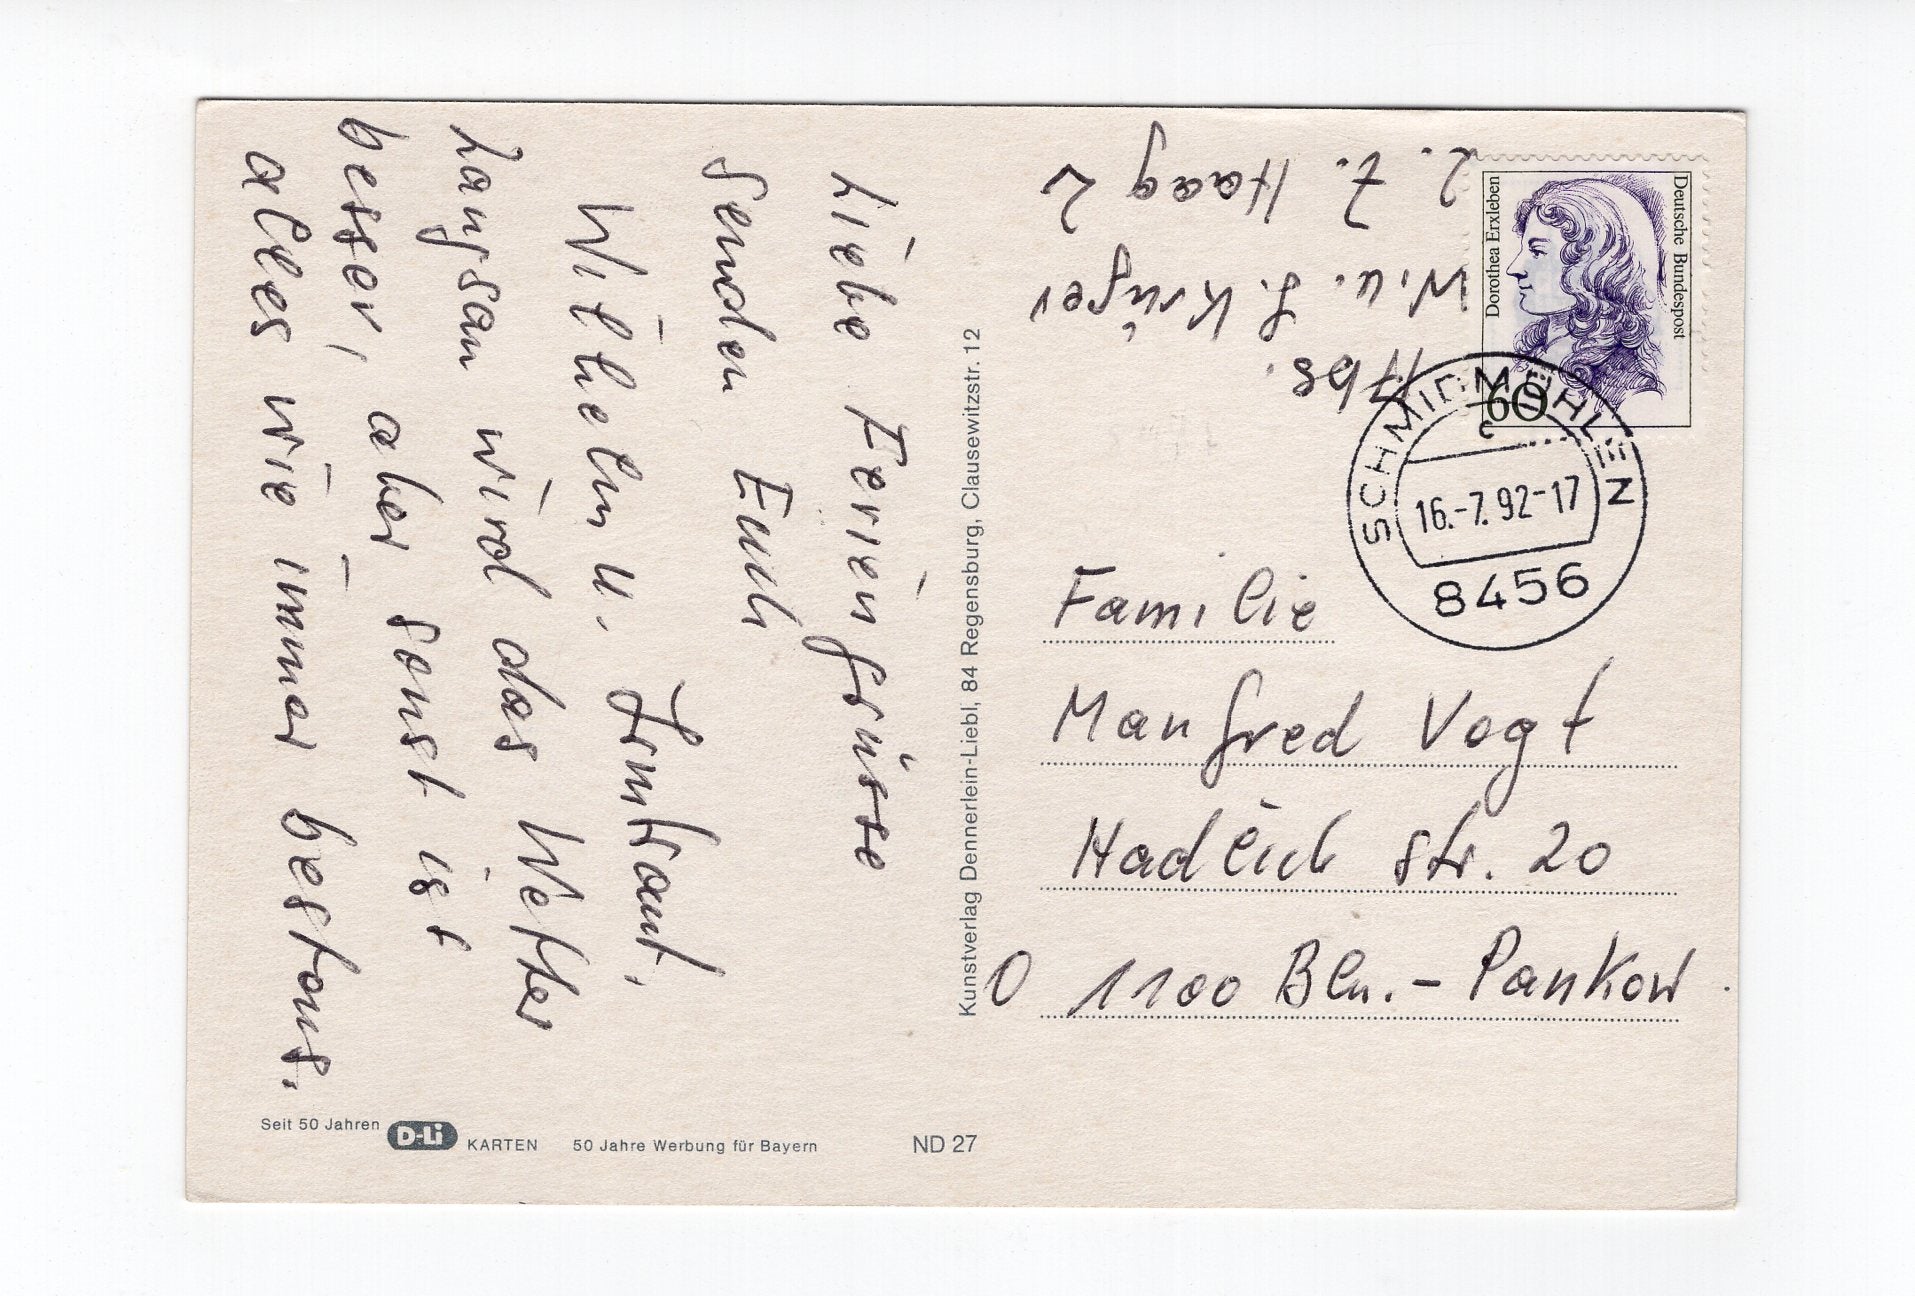 Liebe Feriengrüsse
senden Euch
Wilhelm u. Irmtraut,
Langsam wird das Wetter
besser, aber sonst ist
alles wie immer bestens.
Abs.
W. u. I. Krüger
z. Z. Haag 2
Deutsche Bundespost
Dorothea Erxleben
60
SCHMIDMÜHLEN
c
16.-7.92-17
8456
Familie
Manfred Vogt
Hadlich str. 20
O 1100 Bln.-Pankow
Kunstverlag Dennerlein-Liebl, 84 Regensburg, Clausewitzstr. 12
Seit 50 Jahren D-Li KARTEN 50 Jahre Werbung für Bayern ND 27